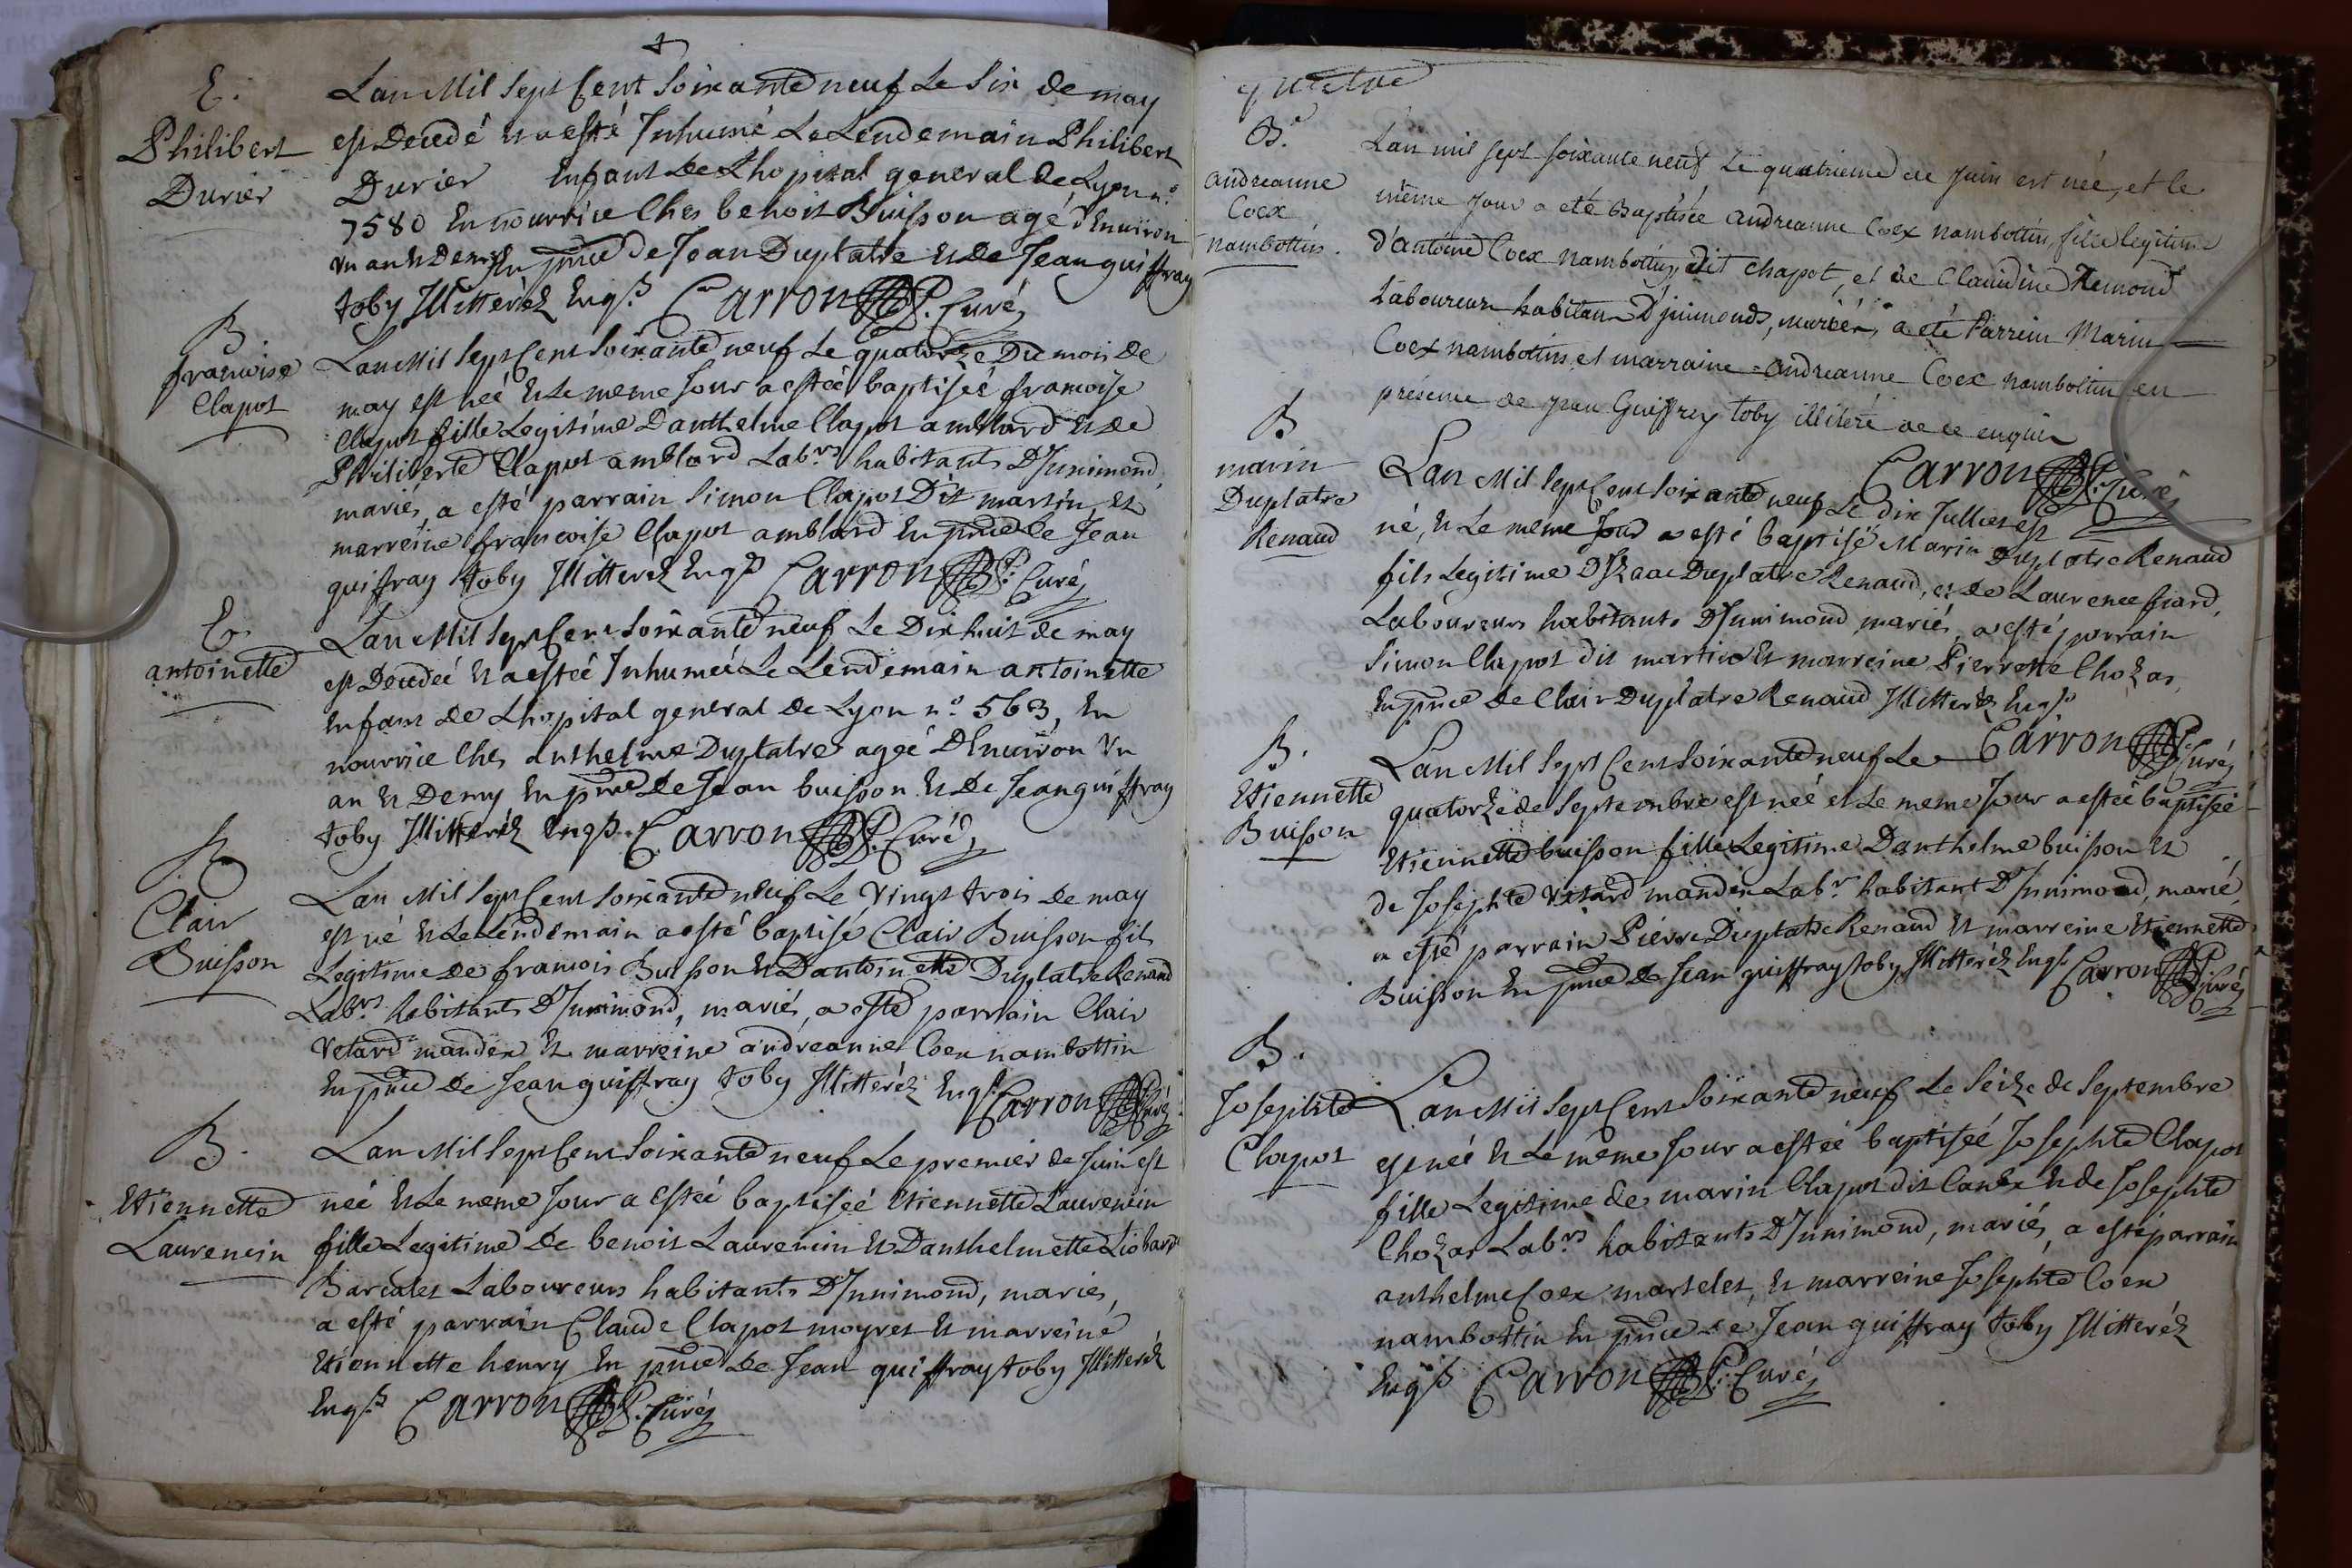 E.
Philibert
Durier
Lan Mil Sept Cent Soixante neuf Le Six de may
est Decedé et a esté Inhumé Le Lendemain Philibert
Durier Enfant de Lhopital general de Lyon n.º
7580 En nourrice Ches benoit Buisson agé d'Environ
un an et Demy En pnce de Jean Duplatre et de Jean guiffray
toby Illitteréz Enqs Carron Curé
B.
francoise
Clapot
Lan Mil Sept Cent Soixante neuf Le quatorze Du mois de
may est née et Le meme Jour a estéé baptiséé francoise
Clapot fille Legitime Danthelme Clapot amblard et de
Philiberte Clapot amblard Labrs habitants D'Innimond,
mariés, a esté parrain Simon Clapot Dit martin, et
marreine francoise Clapot amblard En pnce de Jean
guiffray toby Illitteréz Enqs Carron P. Curé
E.
antoinette
Lan Mil Sept Cent Soixante neuf Le Dix huit de may
est Decedéé et a estéé Inhuméé Le Lendemain antoinette
Enfant de Lhopital general de Lyon n.º 563, En
nourrice Ches anthelme Duplatre aggé D'Environ Un
an et Demy En pnce de Jean buisson et de Jean guiffray
toby Illitteréz Enqs. Carron P. Curé
B
Clair
Buisson
Lan Mil Sept Cent Soixante neuf Le Vingt trois de may
est né et Le Lendemain a esté baptisé Clair Buisson fils
Legitime de francois Buisson et Dantoinette Duplatre Renaud
Labrs. habitants D'Innimond, mariés, a esté parrain Clair
Vetard manden et marreine andreanne Coex nambottin
En pnce de Jean guiffray toby Illitteréz Enqs Carron Curé
B.
Etiennette
Laurencin
Lan Mil Sept Cent Soixante neuf Le premier de Juin est
néé et Le meme Jour a Estéé baptiséé Etiennette Laurencin
fille Legitime de benoit Laurencin et Danthelmette Liobard
Barcalet Laboureurs habitants D'Innimond, mariés,
a esté parrain Claude Clapot moyret et marreine
Etiennette henry En pnce de Jean guiffray toby Illitteréz
Enqs. Carron P. Curé
quatre
B.
andreanne
Coex
nambottin.
Lan mil sept soixante neuf Le quatrieme de juin est née, et le
même jour a eté Baptisée andreanne Coex nambottin, fille legitime
d'antoine Coex nambottin, dit chapot, et de Claudine Remond
Laboureurs habitans D'jnnimonds, mariés, a eté Parrein Marin
Coex nambottin, et marraine andreanne Coex nambottin en
présence de jean Guiffrey toby illiteré de ce enquis
Carron P. Curé
B
marin
Duplatre
Renaud
Lan Mil Sept Cent Soixante neuf Le dix Juillet est
né, et Le meme Jour a esté baptisé Marin Duplatre Renaud
fils Legitime D'Izaac Duplatre Renaud, et de Laurence friard,
Laboureurs habitants D'Innimond mariés, a esté parrain
Simon Clapot dit martin et marreine Pierrette Chozas,
En pnce de Clair Duplatre Renaud Illitteréz Enqs
Carron P. Curé
B.
Etiennette
Buisson
Lan Mil Sept Cent Soixante neuf Le
quatorze de Septembre est néé et Le meme Jour a estéé baptiséé
Etiennette buisson fille Legitime Danthelme buisson et
de Josephte Vetard manden Labr. habitant D'Innimond, mariés,
a esté parrain Pierre Duplatre Renaud et marreine Etiennette
Buisson En pnce de Jean guiffray toby Illitteréz Enqs Carron P. Curé
B.
Josephte
Clapot
Lan Mil Sept Cent Soixante neuf Le Séize de Septembre
est néé et Le même Jour a estéé baptiséé Josephte Clapot
fille Legitime de marin Clapot dit Canex et de Josephte
Chozas Labrs. habitants D'Innimond, mariés, a esté parrain
anthelme Coex martelet, et marreine Josephte Coex
nambottin En pnce de Jean guiffray toby Illitteréz
Enqs Carron P. Curé